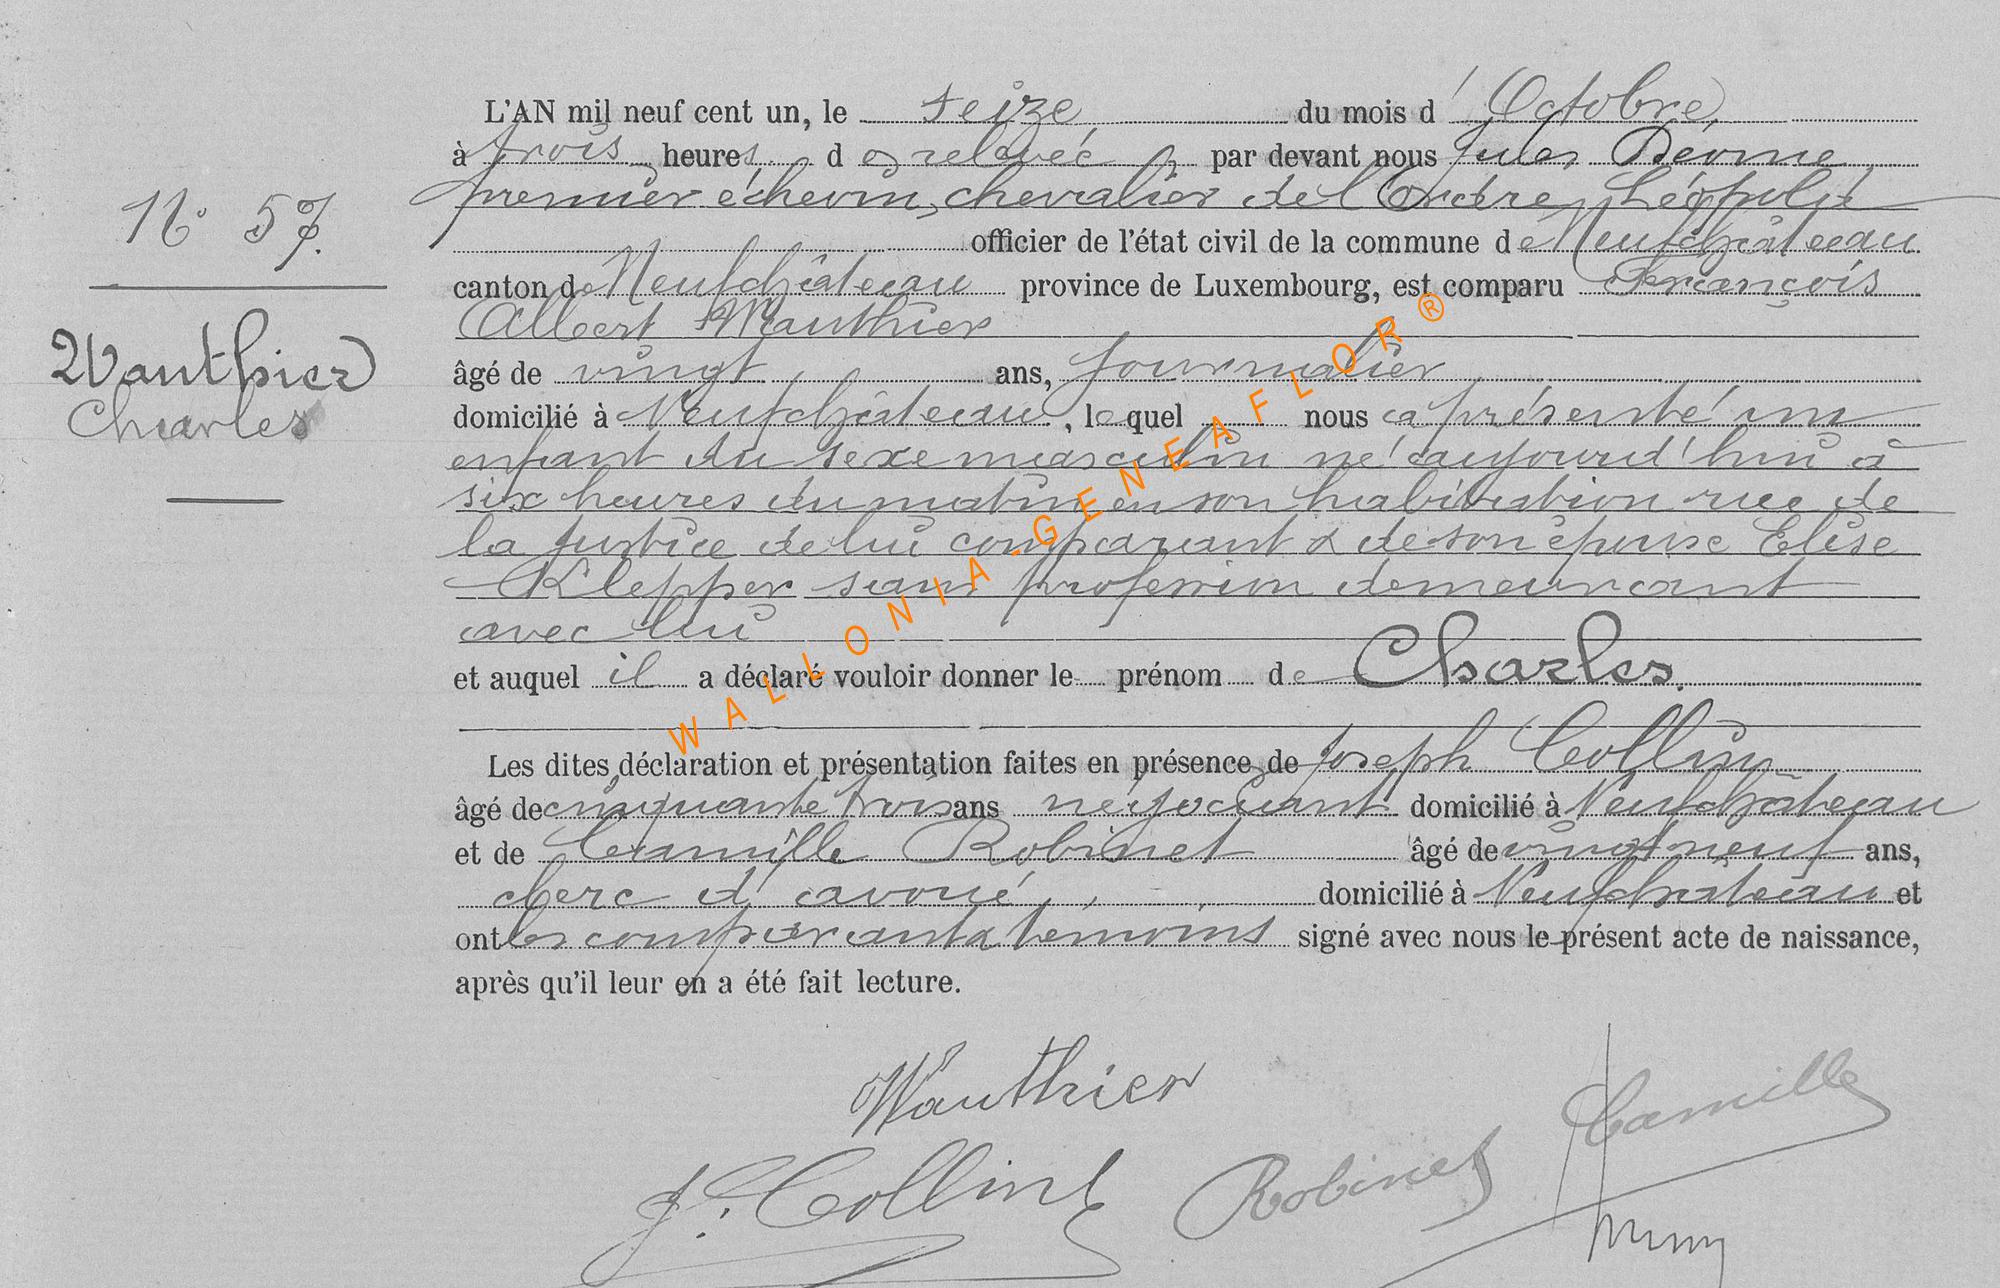 L'AN mil neuf cent un, le seize, du mois d'Octobre,
à trois heures de relevée, par devant nous Jules Déome
premier échevin, chevalier de l'Ordre Léopold
officier de l'état civil de la commune de Neufchâteau
N° 57.
canton de Neufchâteau province de Luxembourg, est comparu François
Albert Wauthier
Wauthier
Charles
âgé de vingt ans, journalier
domicilié à Neufchâteau, lequel nous a présenté un
enfant du sexe masculin né aujourd'hui à
six heures du matin en son habitation rue de
la Justice de lui comparant & de son épouse Elise
Klepper sans profession demeurant
avec lui
et auquel il a déclaré vouloir donner le prénom de Charles.
Les dites déclaration et présentation faites en présence de Joseph Collin
âgé de cinquante trois ans négociant domicilié à Neufchâteau
et de Camille Robinet âgé de vingt neuf ans,
clerc d'avoué, domicilié à Neufchâteau et
ont les comparant & témoins signé avec nous le présent acte de naissance,
après qu'il leur en a été fait lecture.
Wauthier
J. Collin
Robinet Camille
WALLONIA-GENEAFLOR®